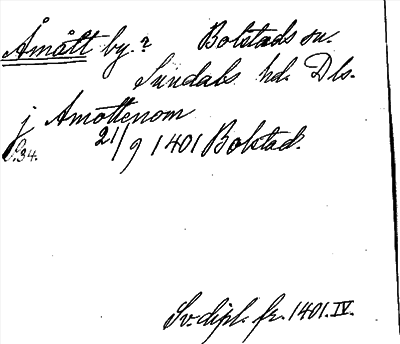 Åmått by.? Bolstads sn.
Sundals hd. Dls.
j Amottenom
21/9 1401 Bolstad.
S. 34.
Sv. dipl. fr. 1401. IV.